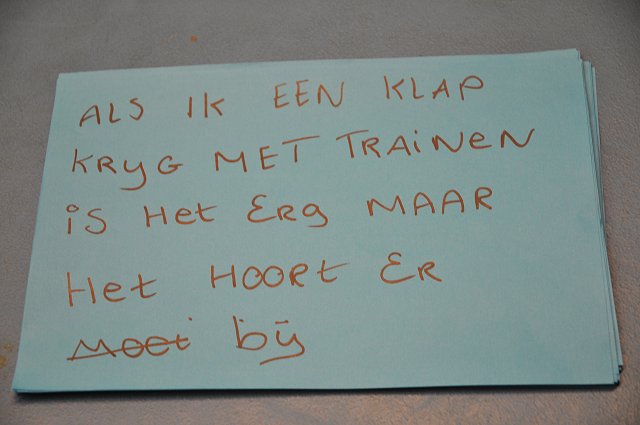 ALS IK EEN KLAP
KRyG MET TRAiNeN
iS Het ERg MAAR
Het HOORt ER
moei bij